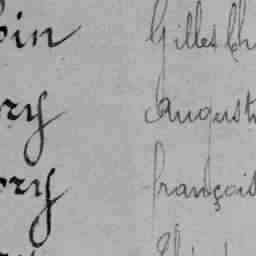 bin Gilles Ch
ory August
ory françois